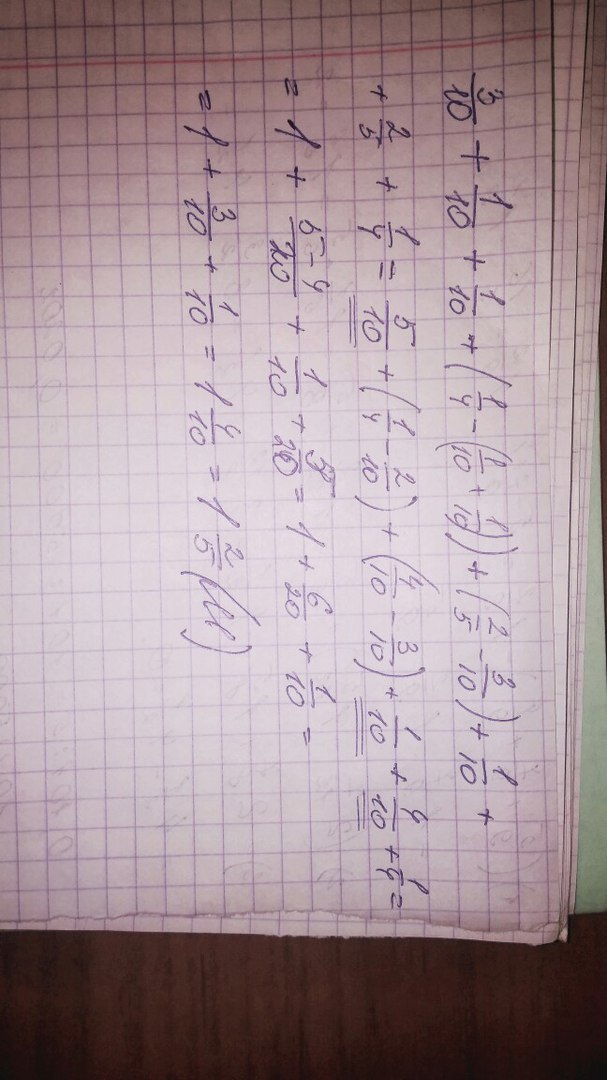 3/10 + 1/10 + 1/10 + (1/4 - (1/10 + 1/10)) + (2/5 - 3/10) + 1/10 +
+ 2/5 + 1/4 = 5/10 + (1/4 - 2/10) + (4/10 - 3/10) + 1/10 + 4/10 + 1/4 =
= 1 + 5-4/20 + 1/10 + 5/20 = 1 + 6/20 + 1/10 =
= 1 + 3/10 + 1/10 = 1 4/10 = 1 2/5 (м)